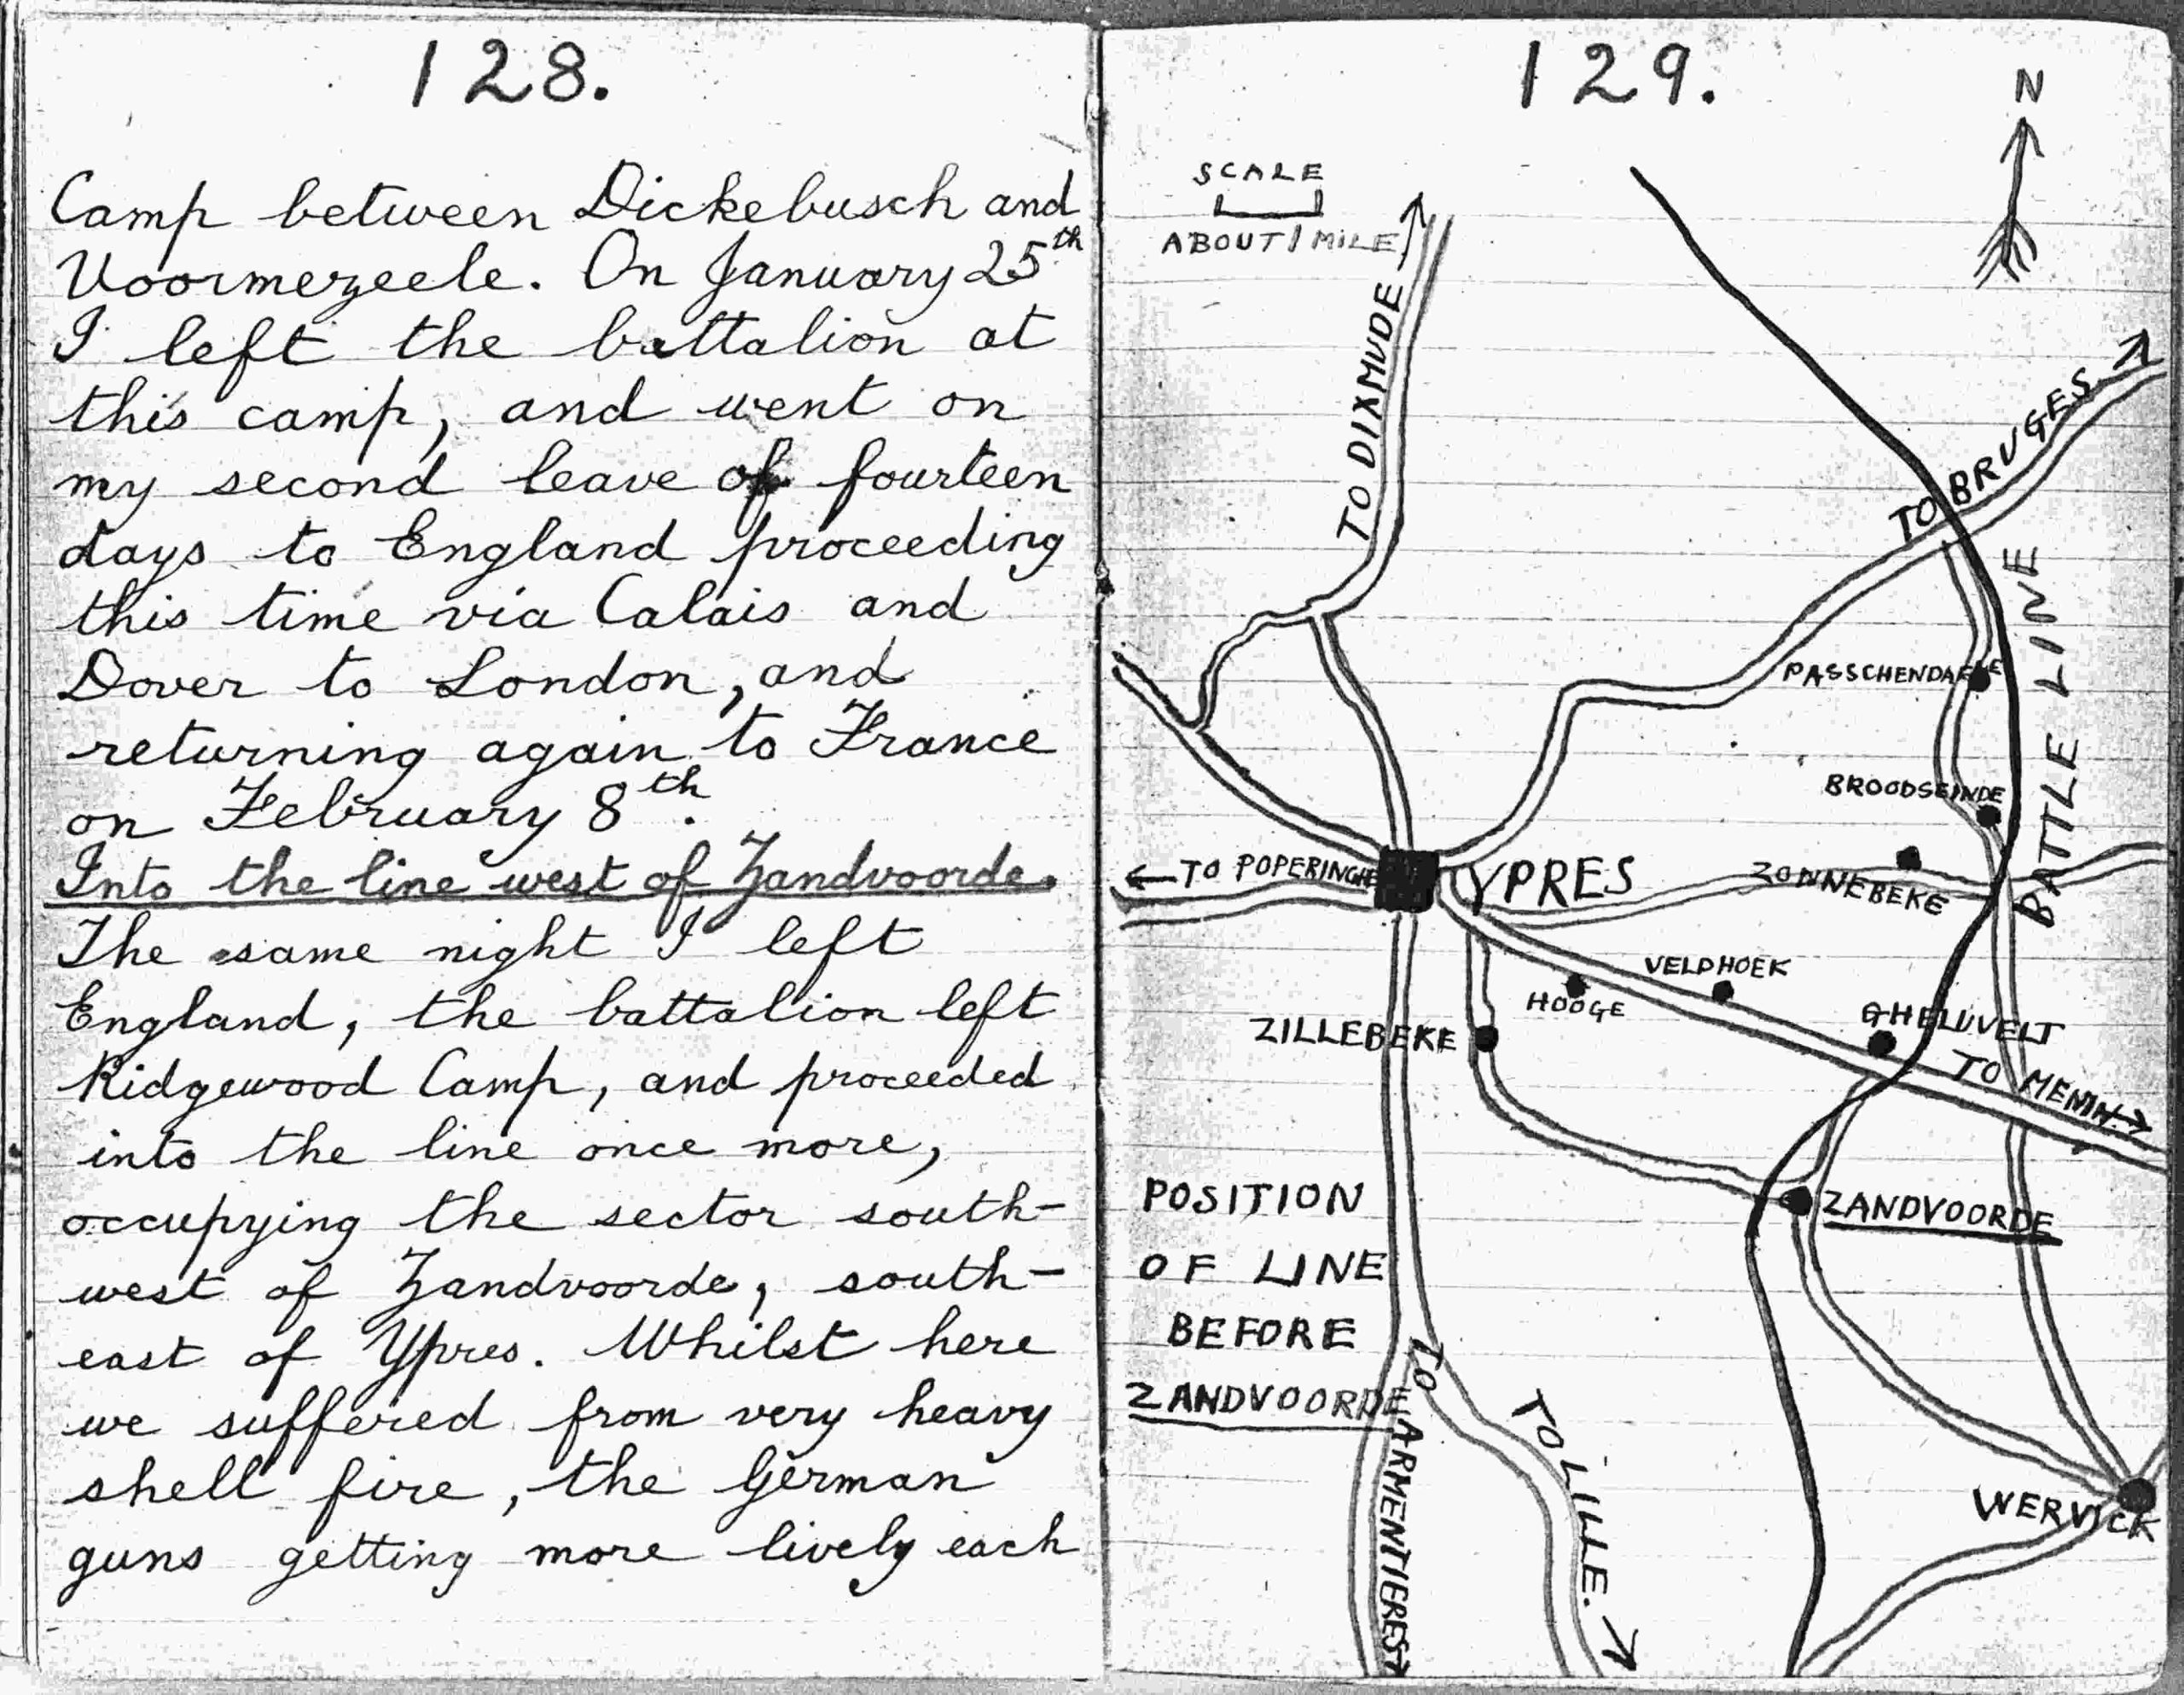 128.
Camp between Dickebusch and
Voormezeele. On January 25th
I left the battalion at
this camp, and went on
my second leave of fourteen
days to England proceeding
this time via Calais and
Dover to London, and
returning again to France
on February 8th.
Into the line west of Zandvoorde.
The same night I left
England, the battalion left
Ridgewood Camp, and proceeded
into the line once more,
occupying the sector south-
west of Zandvoorde, south-
east of Ypres. Whilst here
we suffered from very heavy
shell fire, the German
guns getting more lively each
129.
N
SCALE
ABOUT 1 MILE
TO DIXMUDE
TO BRUGES
BATTLE LINE
PASSCHENDAELE
BROODSEINDE
TO POPERINGHE
YPRES
ZONNEBEKE
VELDHOEK
HOOGE
GHELUVELT
ZILLEBEKE
TO MENIN
POSITION
OF LINE
BEFORE
ZANDVOORDE
ZANDVOORDE
TO ARMENTIERES
TO LILLE.
WERVICK